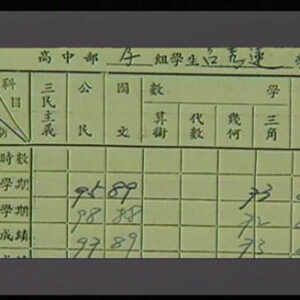 高中部 組學生
科目 三民主義 公民 國文 數學
算術 代數 幾何 三角
時數
學期 95 89 73
學期 98 88 72
成績 97 89 73